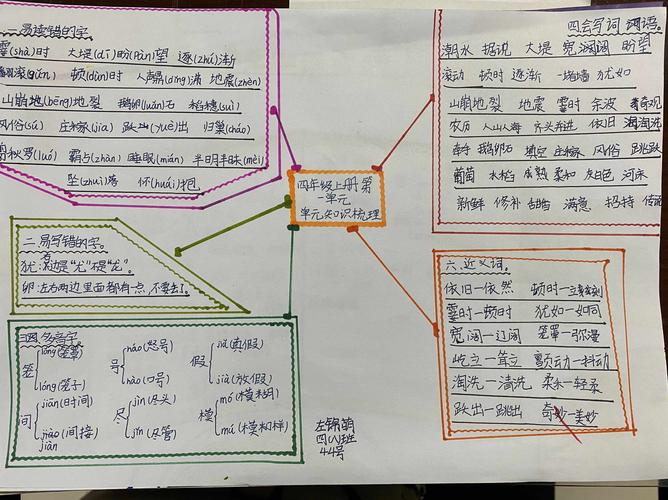 一.易读错的字.
霎(shà)时 大堤(dī) 盼(pàn)望 逐(zhú)渐
顿(dùn)时 人声鼎(dǐng)沸 地震(zhèn)
山崩地(bēng)地裂 鹅卵(luán)石 稻穗(suì)
风俗(sú) 庄稼(jia) 跃出(yuè)出 归巢(cháo)
秋罗(luó) 霸占(zhàn) 睡眠(mián) 半明半昧(mèi)
坠(zhuì)落 怀(huái)抱
二.易写错的字.
犹:右边是"尤"不是"龙".
卵:左右两边里面都有点,不要丢了.
多音字.
笼 lǒng(笼罩) lóng(笼子)
号 háo(怒号) hào(口号)
假 jiǎ(真假) jià(放假)
间 jiān(时间) jiào(间接) jiàn
尽 jìn(尽头) jǐn(尽管)
模 mó(模糊) mú(模样)
四年级上册第
一单元
单元知识梳理
四会写词 词语.
潮水 据说 大堤 宽阔 盼望
滚动 顿时 逐渐 一堵墙 犹如
山崩地裂 地震 霎时 余波 奇观
农历 人山人海 齐头并进 依旧 淘洗
牵手 鹅卵石 填空 庄稼 风俗 跳跃
葡萄 水稻 成熟 柔和 灰白色 河床
新鲜 修补 甜 满意 招待
六.近义词.
依旧—依然 顿时—立刻
霎时—顿时 犹如—如同
宽阔—辽阔 笼罩—弥漫
屹立—耸立 颤动—抖动
淘洗—清洗 柔和—轻柔
跃出—跳出 奇妙—美妙
左锦萌
四(1)班
44号